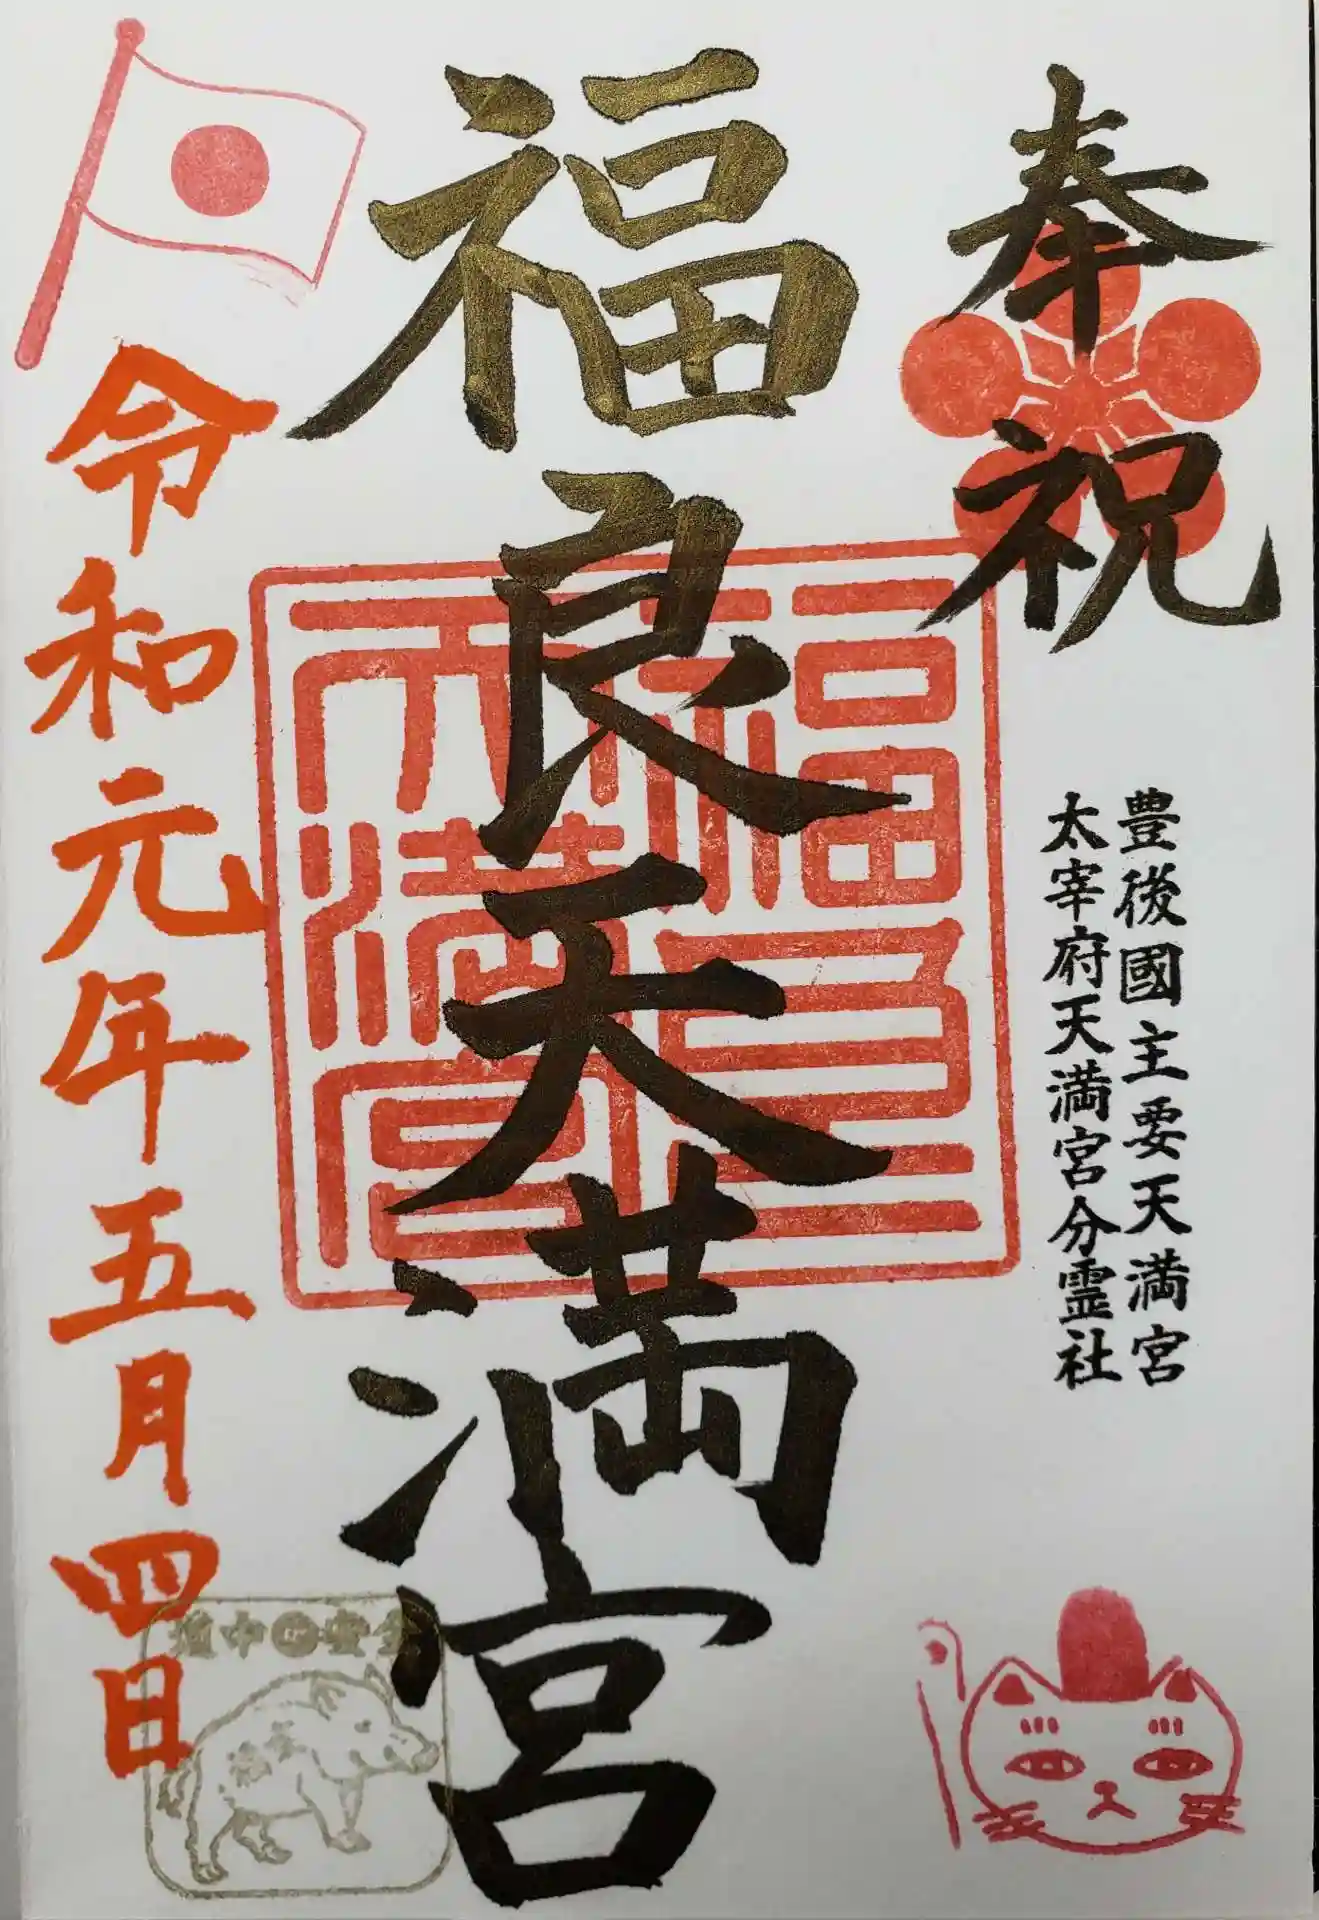 奉祝
豊後國主要天満宮
太宰府天満宮分霊社
福良天満宮
福良
天満宮
令和元年五月四日
道中安全